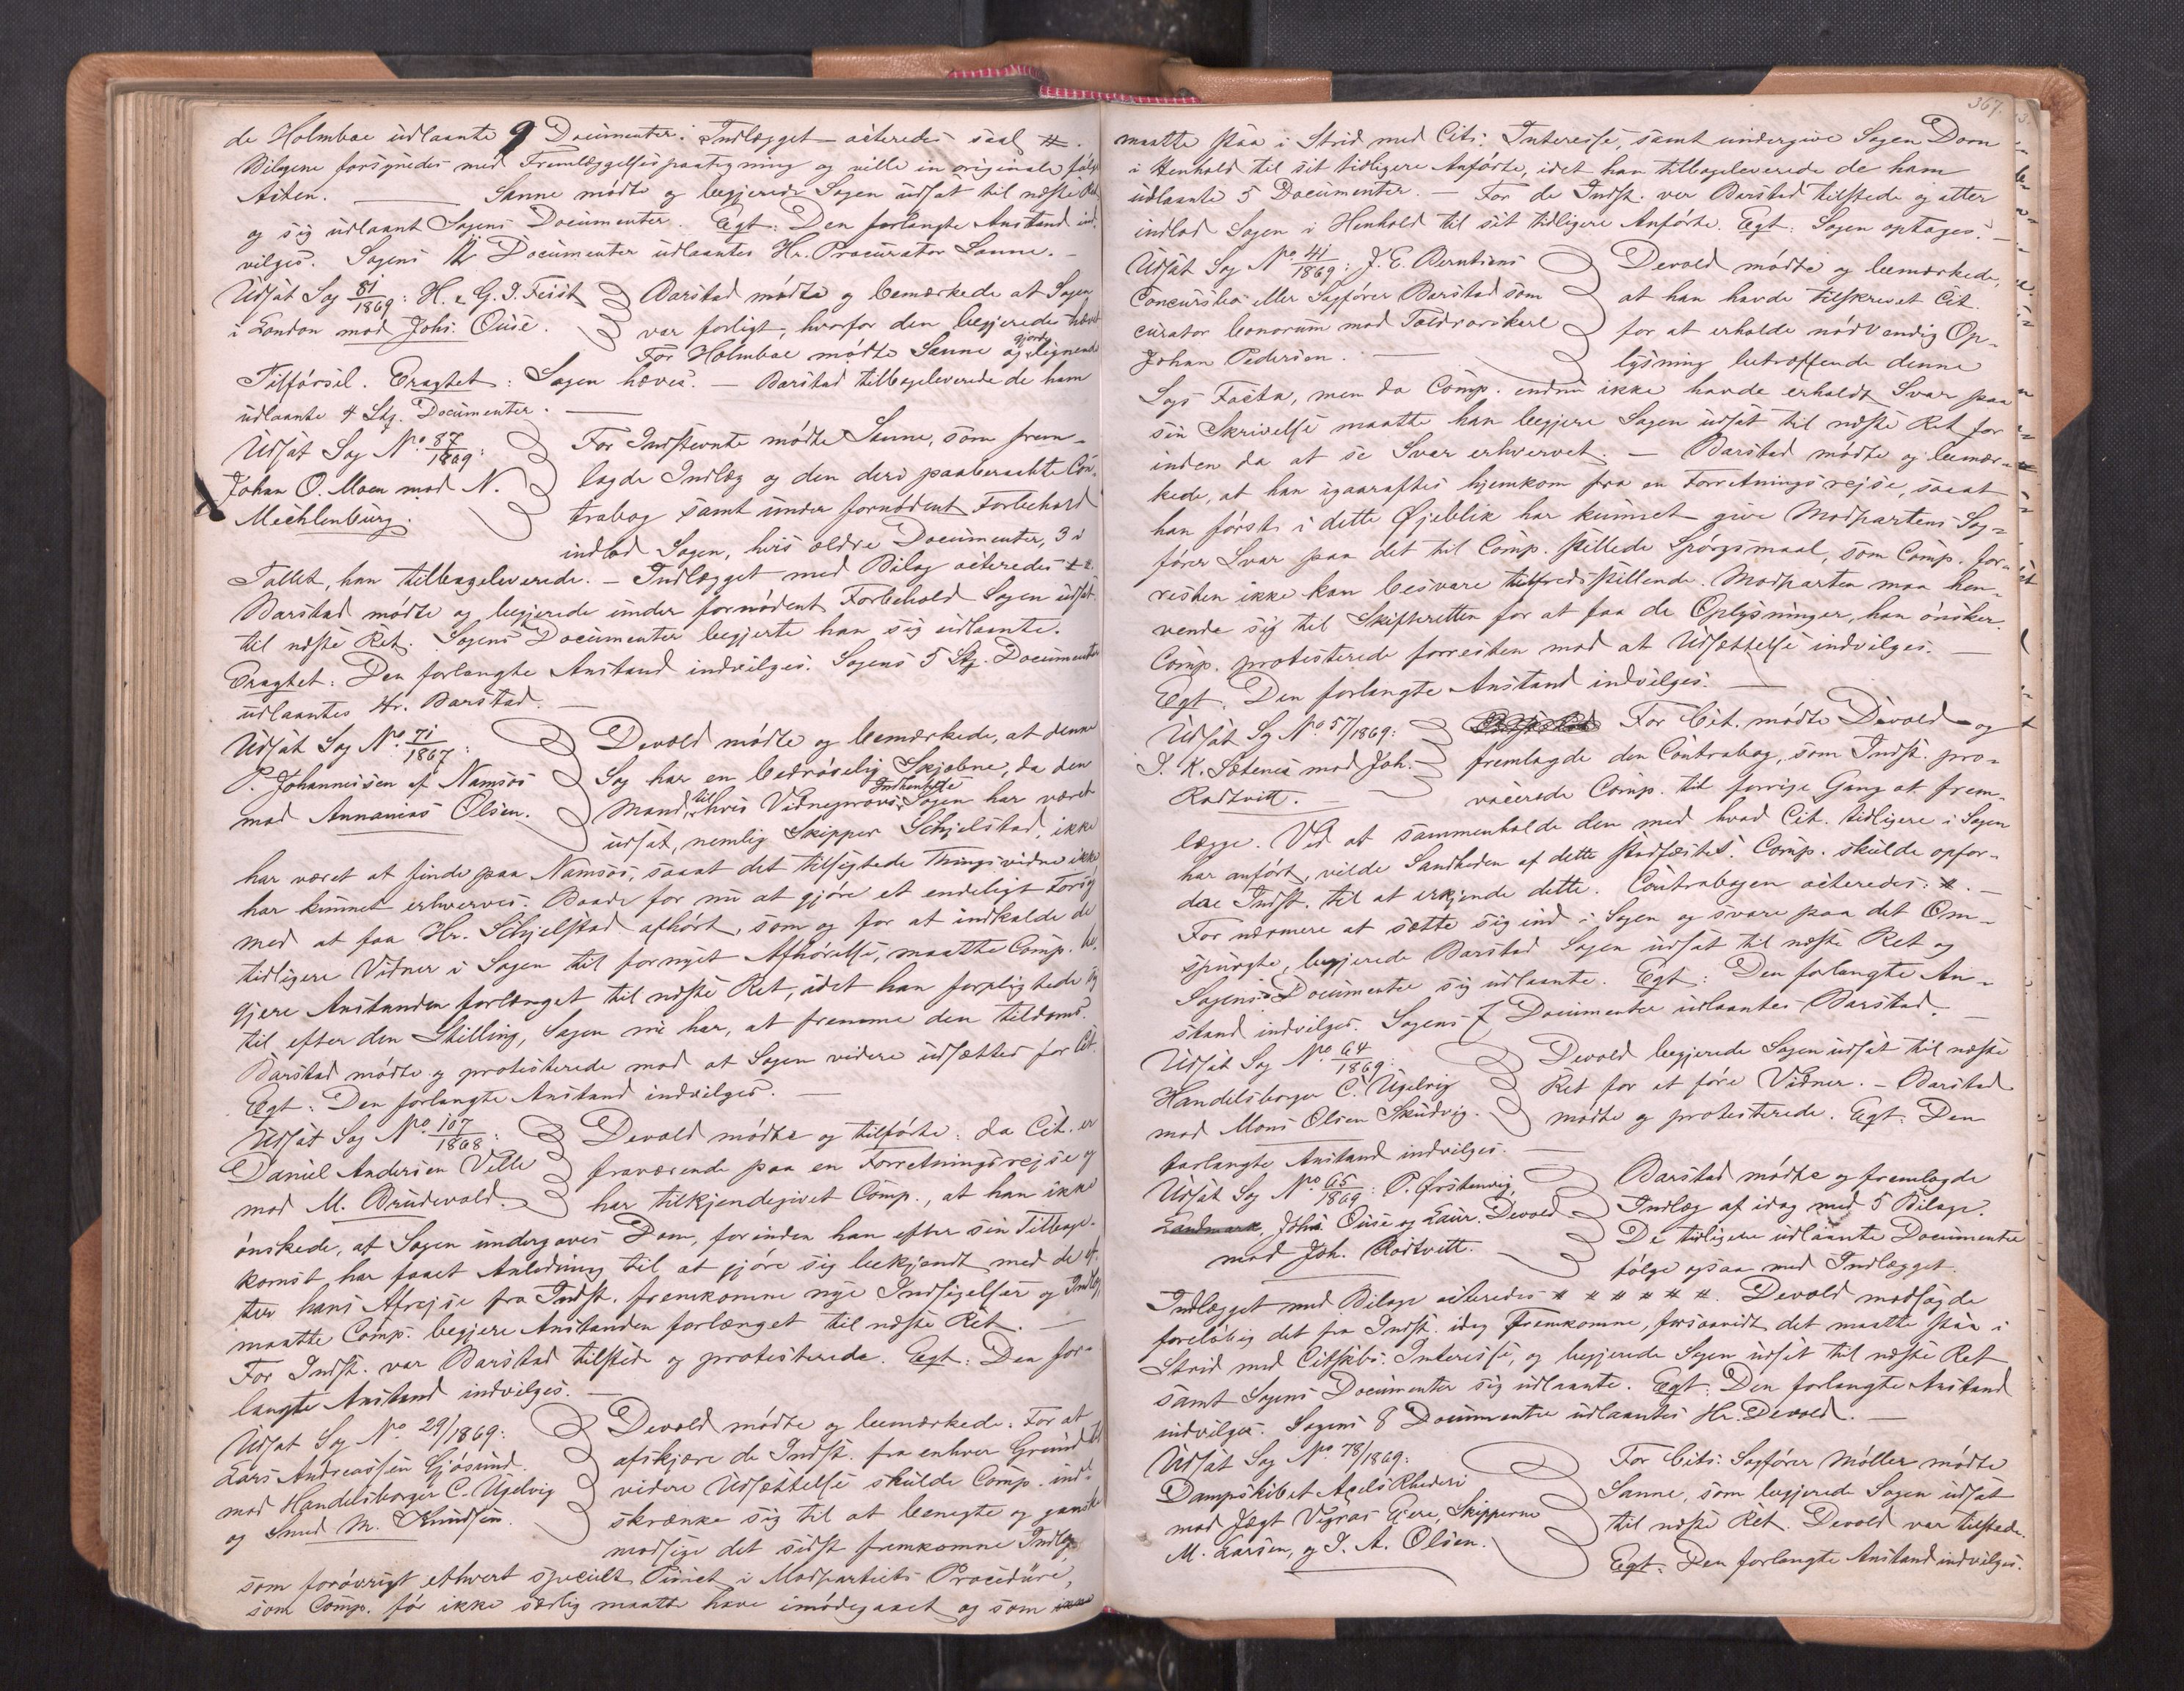 de Holmboe udlaante 9 Documenter. Indlægget acteredes saal. #.
Bilagene forsynedes med Fremlæggelsespaategning og ville in originale følge
Acten. — Sanne mødte og begjerede Sagen udsat til næste Ret
og sig udlaant Sagens Documenter. Egt: Den forlangte Anstand ind-
vilges. Sagens Documenter udlaantes Hr. Procurator Sanne. —
Udsat Sag 81/1869: H. & G. T. Feist
i London mod Johs. Ouse.
Barstad mødte og bemærkede at Sagen
var forligt, hvorfor den begjeredes hævet
For Holmboe mødte Sanne og gjorde lignende
Tilførsel. Eragtet: Sagen hæves. — Barstad tilbageleverede de ham
udlaante 4 Stkr. Documenter. —
Udsat Sag No. 87/1869:
Johan O. Moen mod N.
Mechlenburg.
For Indstevnte mødte Sanne, som frem-
lagde Indlæg og den deri paaberaabte Con-
trabog samt under fornødent Forbehold
indlod Sagen, hvis ældre Documenter, 3 i
Tallet, han tilbageleverede. — Indlægget med Bilag acteredes # #.
Barstad mødte og begjerede under fornødent Forbehold Sagen udsat
til næste Ret. Sagens Documenter begjerte han sig udlaante.
Eragtet: Den forlangte Anstand indvilges. Sagens 5 Stkr. Documenter
udlaantes Hr. Barstad. —
Udsat Sag No. 71/1867:
P. Johannessen af Namsos
mod Annanias Olsen.
Devold mødte og bemærkede, at denne
Sag har en bedrøvelig Skjæbne, da den
Mand, til hvis Vidneprovs Indhentelse Sagen har været
udsat, nemlig Skipper Schjelstad, ikke
har været at finde paa Namsos, saaat det tilsigtede Thingsvidne ikke
har kunnet erhverves. Baade for nu at gjøre et endeligt Forsøg
med at faa Hr. Schjelstad afhørt, som og for at indkalde de
tidligere Vidner i Sagen til fornyet Afhørelse, maatte Comp. be-
gjere Anstanden forlænget til næste Ret, idet han forpligtede sig
til efter den Stilling, Sagen nu har, at fremme den tildoms.
Barstad mødte og protesterede mod at Sagen videre udsættes for Cit.
Egt: Den forlangte Anstand indvilges. —
Udsat Sag No. 107/1868:
Daniel Andersen Velle
mod M. Brudevold.
Devold mødte og tilførte: da Cit. er
fraværende paa en Forretningsrejse og
har tilkjendegivet Comp., at han ikke
ønskede, at Sagen undergaves Dom, forinden han efter sin Tilbage-
komst har faaet Anledning til at gjøre sig bekjendt med de ef-
ter hans Afrejse fra Indst. fremkomne nye Indsigelser og Indlæg
maatte Comp. begjere Anstanden forlænget til næste Ret. —
For Indst. var Barstad tilstede og protesterede. Egt: Den for-
langte Anstand indvilges. —
Udsat Sag No. 29/1869:
Lars Andreassen Gjøsund
mod Handelsborger C. Ugelvig
og Smed M. Knudsen.
Devold mødte og bemærkede: For at
afskjære de Indst. fra enhver Grund til
videre Udsættelse skulde Comp. ind-
skrænke sig til at benegte og ganske
modsige det sidst fremkomne Indlæg
som forøvrigt ethvert specielt Punct i Modpartiets Procedure,
som Comp. før ikke særlig maatte have imødegaaet og som
367.
maatte staa i Strid med Cits. Interesse, samt undergive Sagen Dom
i Henhold til sit tidligere Anførte, idet han tilbageleverede de ham
udlaante 5 Documenter. — For de Indst. var Barstad tilstede og atter
indlod Sagen i Henhold til sit tidligere Anførte. Egt: Sagen optages. —
Udsat Sag No. 41/1869: J. E. Berntsens
Concursbo eller Sagfører Barstad som
curator bonorum mod Toldroerskarl
Johan Pedersen. —
Devold mødte og bemærkede,
at han havde tilskrevet Cit.
for at erholde nødvendig Op-
lysning betræffende denne
Sags Facta, men da Comp. endnu ikke havde erholdt Svar paa
sin Skrivelse maatte han begjere Sagen udsat til næste Ret for
inden da at se Svar erhvervet. — Barstad mødte og bemær-
kede, at han igaaraftes hjemkom fra en Forretningsrejse, saaat
han først i dette Øjeblik har kunnet give Modpartens Sag-
fører Svar paa det til Comp. stillede Spørgsmaal, som Comp. for-
resten ikke kan besvare tilfredsstillende. Modparten maa hen-
vende sig til Skifteretten for at faa de Oplysninger, han ønsker.
Comp. protesterede forresten mod at Udsættelse indvilges. —
Egt: Den forlangte Anstand indvilges. —
Udsat Sag No. 57/1869:
J. K. Sætenes mod Joh.
Rødtvitt. —
For Cit. mødte Devold og
fremlagde den Contrabog, som Indst. pro-
vocerede Comp. til forrige Gang at frem-
lægge. Ved at sammenholde den med hvad Cit. tidligere i Sagen
har anført, vilde Sandheden af dette stadfæstes. Comp. skulde opfor-
dre Indst. til at erkjende dette. Contrabogen acteredes: #. —
For nærmere at sætte sig ind i Sagen og svare paa det Om-
spurgte, begjerede Barstad Sagen udsat til næste Ret og
Sagens Documenter sig udlaante. Egt: Den forlangte An-
stand indvilges. Sagens 7 Documenter udlaantes Barstad. —
Udsat Sag No. 64/1869:
Handelsborger C. Ugelvig
mod Mons Olsen Skudvig.
Devold begjerede Sagen udsat til næste
Ret for at føre Vidner. — Barstad
mødte og protesterede. Egt: Den
forlangte Anstand indvilges. —
Udsat Sag No. 65/1869: P. Ørstenvig,
Landmark, Johs. Ouse og Laur. Devold
mod Joh. Rødtvitt.
Barstad mødte og fremlagde
Indlæg af idag med 5 Bilage.
De tidligere udlaante Documenter
følge ogsaa med Indlægget.
Indlægget med Bilage acteredes # # # # # #. Devold modsagde
foreløbig det fra Indst. idag Fremkomne, forsaavidt det maatte staa i
Strid med Citstkbs. Interesse, og begjerede Sagen udsat til næste Ret
samt Sagens Documenter sig udlaante. Egt: Den forlangte Anstand
indvilges. Sagens 8 Documenter udlaantes Hr. Devold. —
Udsat Sag No. 78/1869:
Dampskibet Axels Rhederi
mod Jægt Vigras Ejere, Skipperne
M. Larsen, og J. A. Olsen.
For Cits. Sagfører Møller mødte
Sanne, som begjerede Sagen udsat
til næste Ret. Devold var tilstede.
Egt: Den forlangte Anstand indvilges.